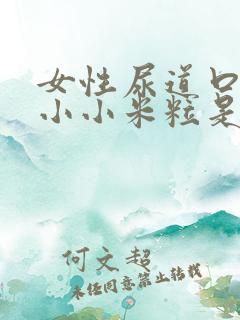 女性尿道口
小小米粒是
何文超
未经同意禁止转载